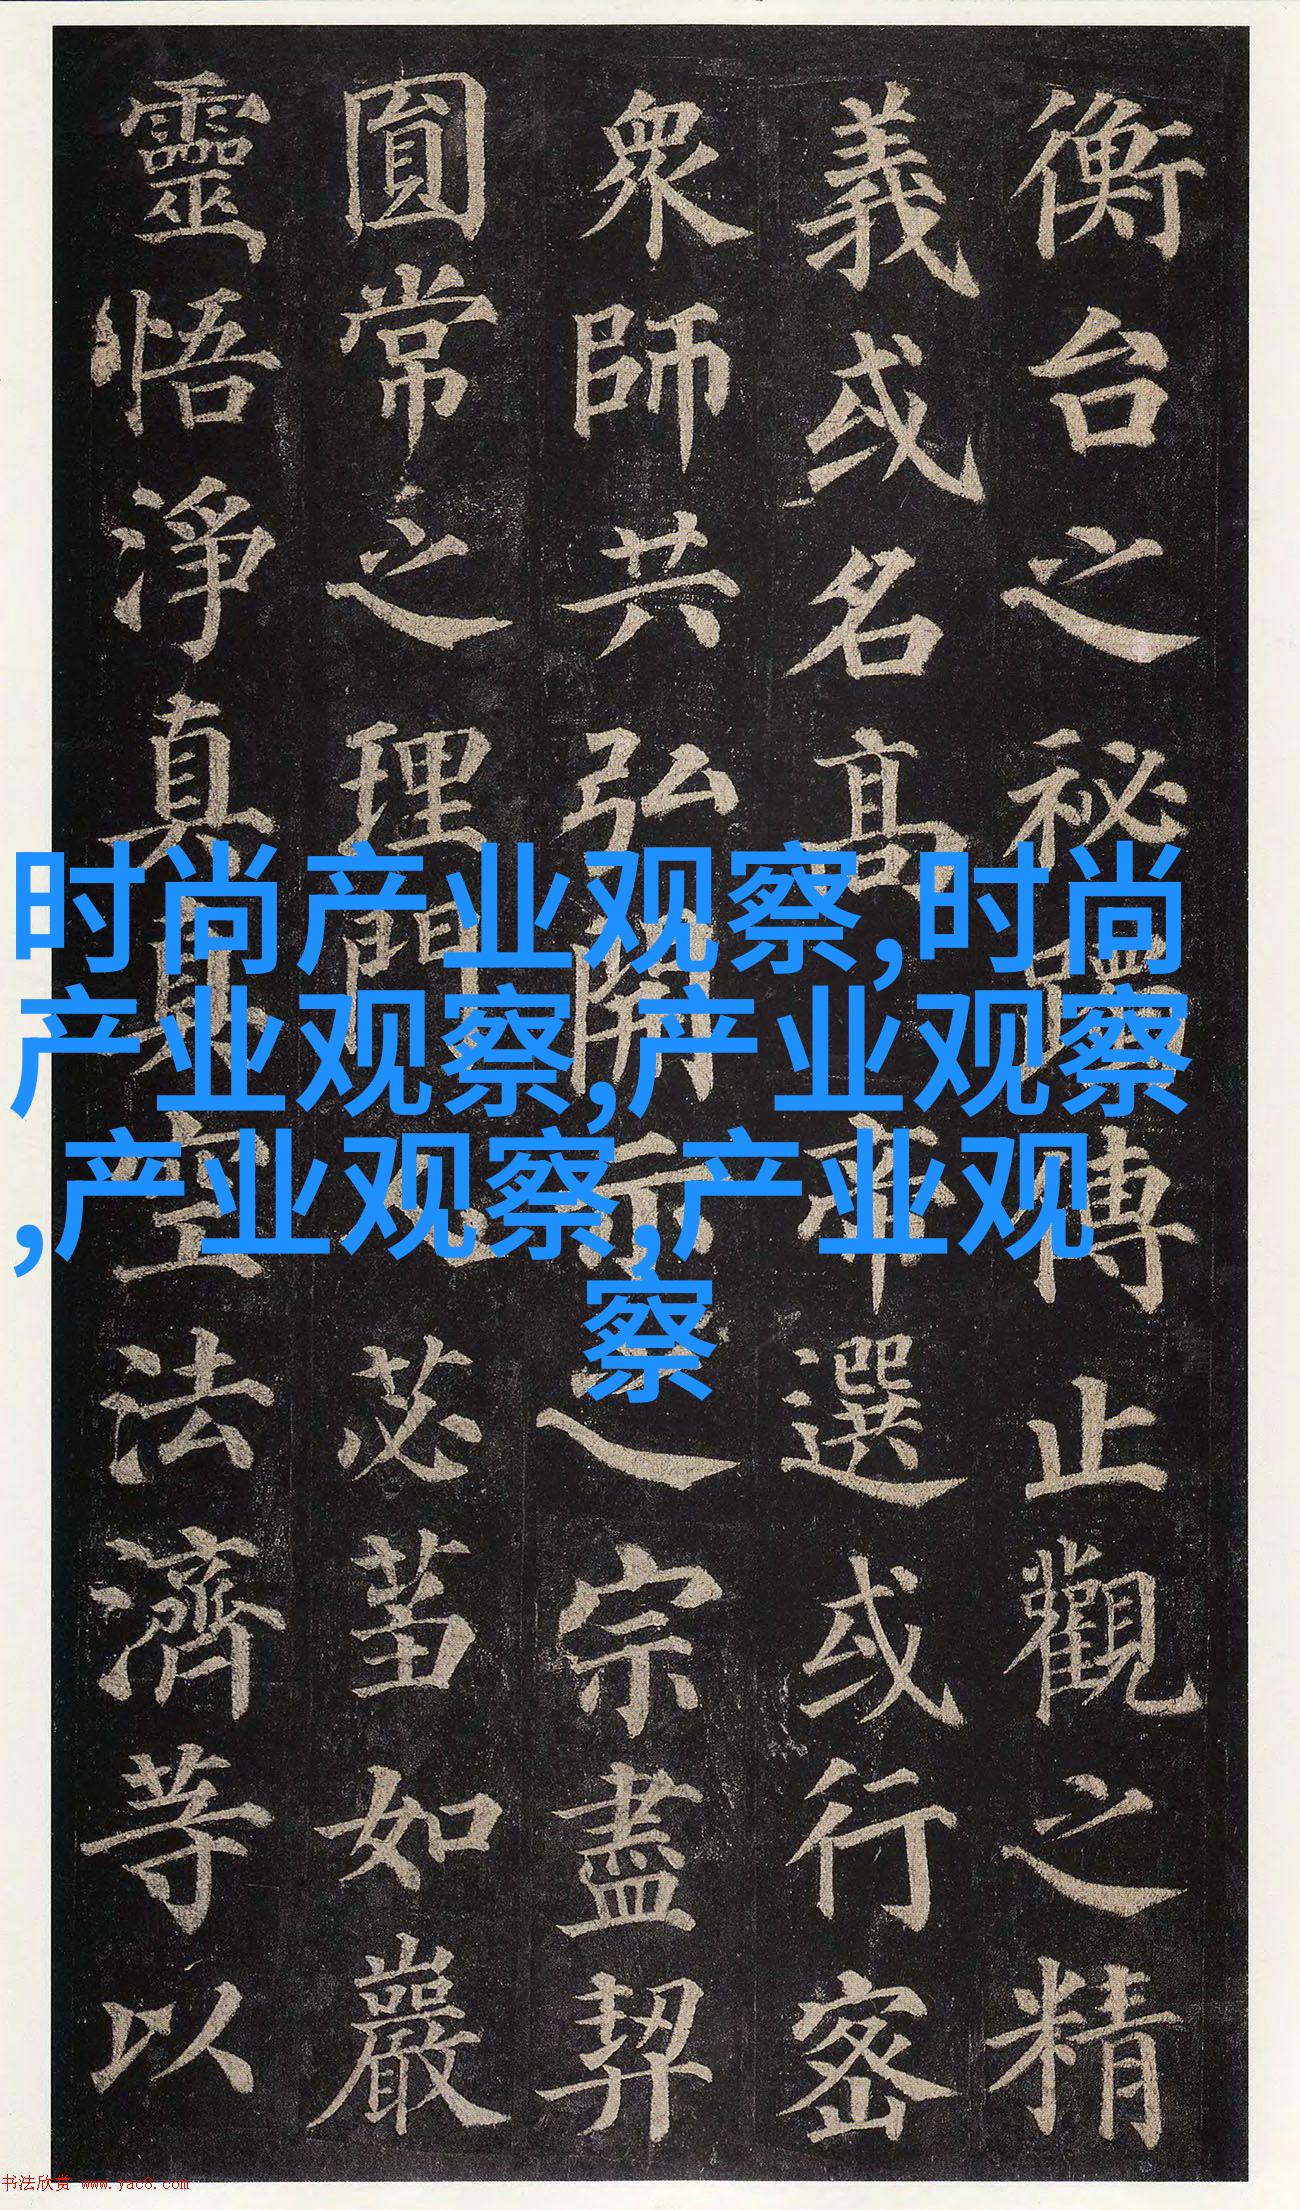 衡台之秘傳止觀之精
義或名高帝選或行密
衆師共弘開示之宗盡契
圓常之理間以苾芻如巖
靈悟淨真真空法濟等以
时尚产业观察,时尚
产业观察,产业观察
,产业观察,产业观
察
书法欣赏 www.yac8.com